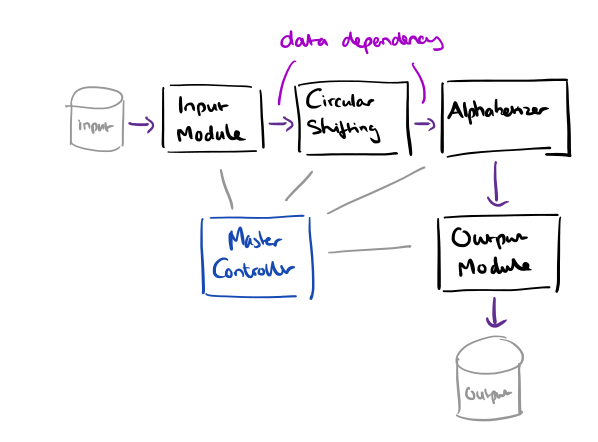 data dependency
input
Input
Module
Circular
Shifting
Alphabetizer
Master
Controller
Output
Module
Output